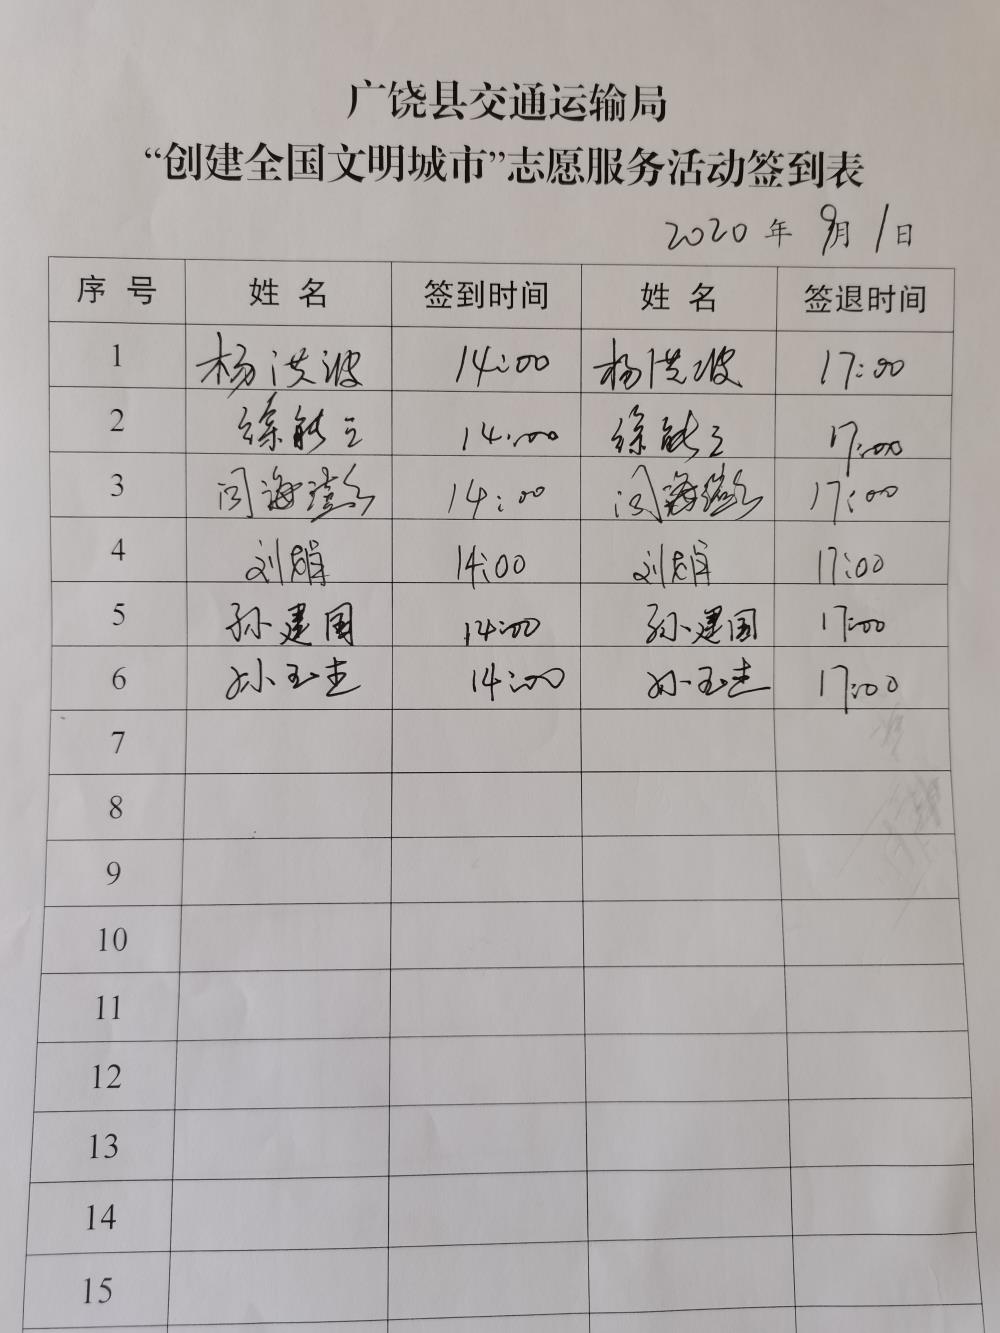 广饶县交通运输局
“创建全国文明城市”志愿服务活动签到表
2020 年 9月 1日
序 号 姓 名 签到时间 姓 名 签退时间
1 杨洪波 14:00 杨洪波 17:00
2 徐能立 14:00 徐能立 17:00
3 闫海 14:00 闫海 17:00
4 刘 14:00 刘 17:00
5 孙建国 14:00 孙建国 17:00
6 孙玉圭 14:00 孙玉圭 17:00
7
8
9
10
11
12
13
14
15